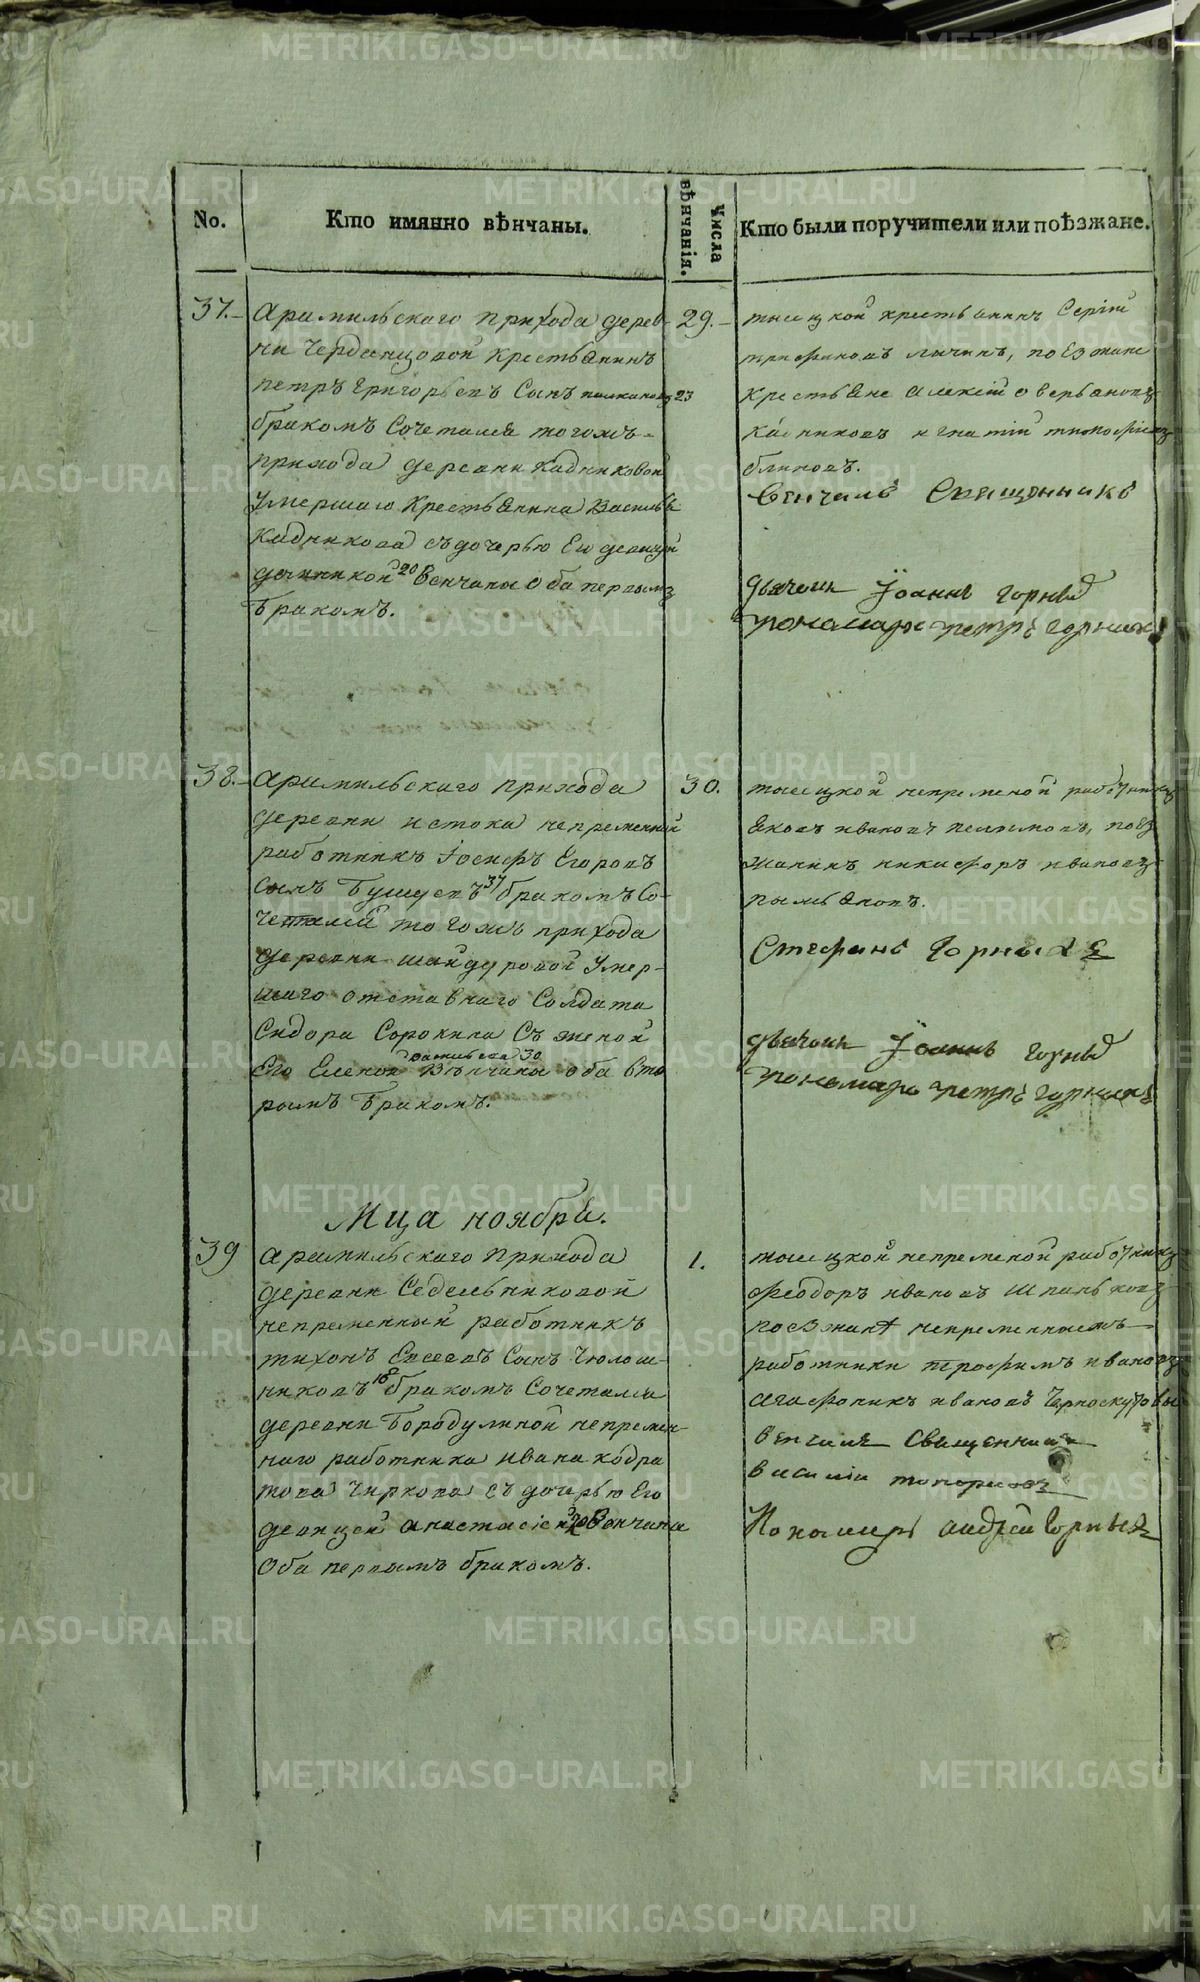 No.
Кто имянно вѣнчаны.
Числа вѣнчанія.
Кто были поручители или поѣзжане.
37.
Арамильскаго прихода дерев-
ни Чердынцовой крестьянинъ
петръ Григорьевъ Сынъ 23
бракомъ Сочетался тогожъ
прихода деревни Кадниковой
умершаго Крестьянина Василья
Кадникова съ дочерью Ею девицей
20 Венчаны Оба первымъ
бракомъ.
29.
тысяцкой крестьянинъ Сергій
трифоновъ лычинъ, поезжане
крестьяне алексій аверьяновъ
Кадниковъ игнатій тимофѣевъ
блиновъ.
Венчалъ Священникъ
дьячекъ Іоаннъ Горныхъ
пономарь петръ Горныхъ
38.
Арамильскаго прихода
деревни истока непременный
работникъ Іосифъ Егоровъ
Сынъ Бушуевъ 37 бракомъ Со-
четался тогожъ прихода
деревни шайдуровой умер-
шаго отставнаго Солдата
Сидора Сорокина Съ женой
Его Еленой Васильева 30 Вѣнчаны оба вто
рымъ бракомъ.
30.
тысяцкой непременой работникъ
Яковъ ивановъ пелымовъ, поез
жанинъ никифоръ ивановъ
Стефанъ Горныхъ
дьячекъ Іоаннъ Горныхъ
пономарь петръ Горныхъ
Мца ноября.
39
арамильскаго Прихода
деревни Седельниковой
непременный работникъ
тихонъ Евсеевъ Сынъ Чюлош-
никовъ 18 бракомъ Сочетался
деревни Бородулиной непремен-
наго работника ивана кодра
това Чиркова съ дочерью Его
девицей анастасіей 20 Венчаны
Оба первымъ бракомъ.
1.
тысяцкой непременой работникъ
Феодоръ ивановъ Шпаньковъ
поезжанѣ непременныемъ
работники трофимъ ивановъ
агафоникъ ивановъ Черноскутовы
венчалъ Священникъ
василіи топорковъ
Пономарь андрей Горныхъ
METRIKI.GASO-URAL.RU